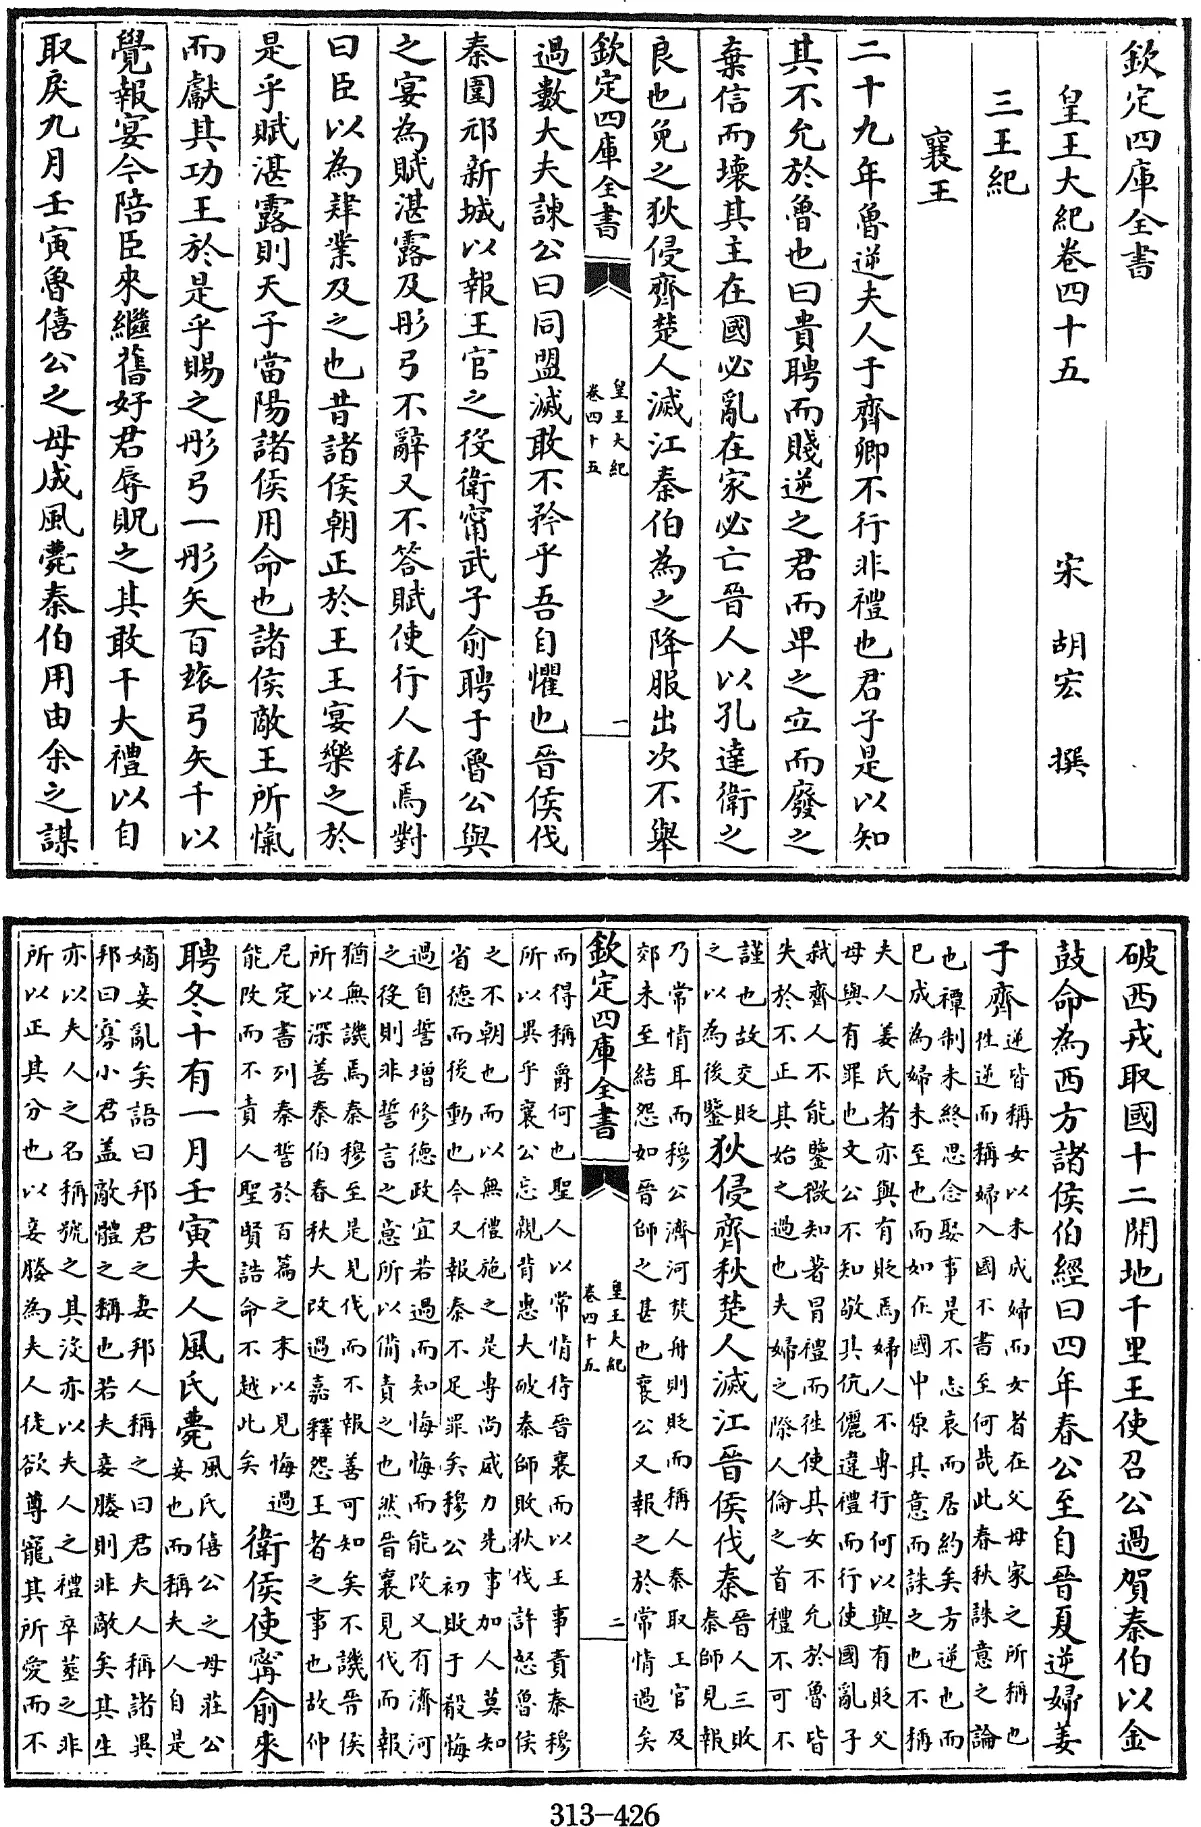 欽定四庫全書
皇王大紀卷四十五
宋 胡宏 撰
三王紀
襄王
二十九年魯逆夫人于齊卿不行非禮也君子是以知
其不允於魯也曰貴聘而賤逆之君而卑之立而廢之
棄信而壞其主在國必亂在家必亡晉人以孔達衛之
良也免之狄侵齊楚人滅江秦伯為之降服出次不舉
欽定四庫全書
皇王大紀
卷四十五
一
過數大夫諫公曰同盟滅敢不矜乎吾自懼也晉侯伐
秦圍邧新城以報王官之役衛甯武子俞聘于魯公與
之宴為賦湛露及彤弓不辭又不答賦使行人私焉對
曰臣以為肄業及之也昔諸侯朝正於王王宴樂之於
是乎賦湛露則天子當陽諸侯用命也諸侯敵王所愾
而獻其功王於是乎賜之彤弓一彤矢百玈弓矢千以
覺報宴今陪臣來繼舊好君辱貺之其敢干大禮以自
取戾九月壬寅魯僖公之母成風薨秦伯用由余之謀
破西戎取國十二開地千里王使召公過賀秦伯以金
鼓命為西方諸侯伯經曰四年春公至自晉夏逆婦姜
于齊
逆皆稱女以未成婦而女者在父母家之所稱也
往逆而稱婦入國不書至何哉此春秋誅意之論
也禫制未終思念娶事是不忘哀而居約矣方逆也而
已成為婦未至也而如在國中原其意而誅之也不稱
夫人姜氏者亦與有貶焉婦人不專行何以與有貶父
母與有罪也文公不知敬其伉儷違禮而行使國亂子
弒齊人不能鑒微知著冒禮而往使其女不允於魯皆
失於不正其始之過也夫婦之際人倫之首禮不可不
謹也故交貶
之以為後鑒
狄侵齊秋楚人滅江晉侯伐秦
晉人三敗
秦師見報
乃常情耳而穆公濟河焚舟則貶而稱人秦取王官及
郊未至結怨如晉師之甚也襄公又報之於常情過矣
欽定四庫全書
皇王大紀
卷四十五
二
而得稱爵何也聖人以常情待晉襄而以王事責秦穆
所以異乎襄公忘親背惠大破秦師敗狄伐許怒魯侯
之不朝也而以無禮施之是專尚威力先事加人莫知
省德而後動也今又報秦不足罪矣穆公初敗于殽悔
過自誓增修德政宜若過而知悔悔而能改又有濟河
之役則非誓言之意所以備責之也然晉襄見伐而報
猶無譏焉秦穆至是見伐而不報善可知矣不譏晉侯
所以深善秦伯春秋大改過嘉釋怨王者之事也故仲
尼定書列秦誓於百篇之末以見悔過
能改而不責人聖賢誥命不越此矣
衛侯使甯俞來
聘冬十有一月壬寅夫人風氏薨
風氏僖公之母莊公
妾也而稱夫人自是
嫡妾亂矣語曰邦君之妻邦人稱之曰君夫人稱諸異
邦曰寡小君蓋敵體之稱也若夫妾媵則非敵矣其生
亦以夫人之名稱號之其沒亦以夫人之禮卒葬之非
所以正其分也以妾媵為夫人徒欲尊寵其所愛而不
313-426